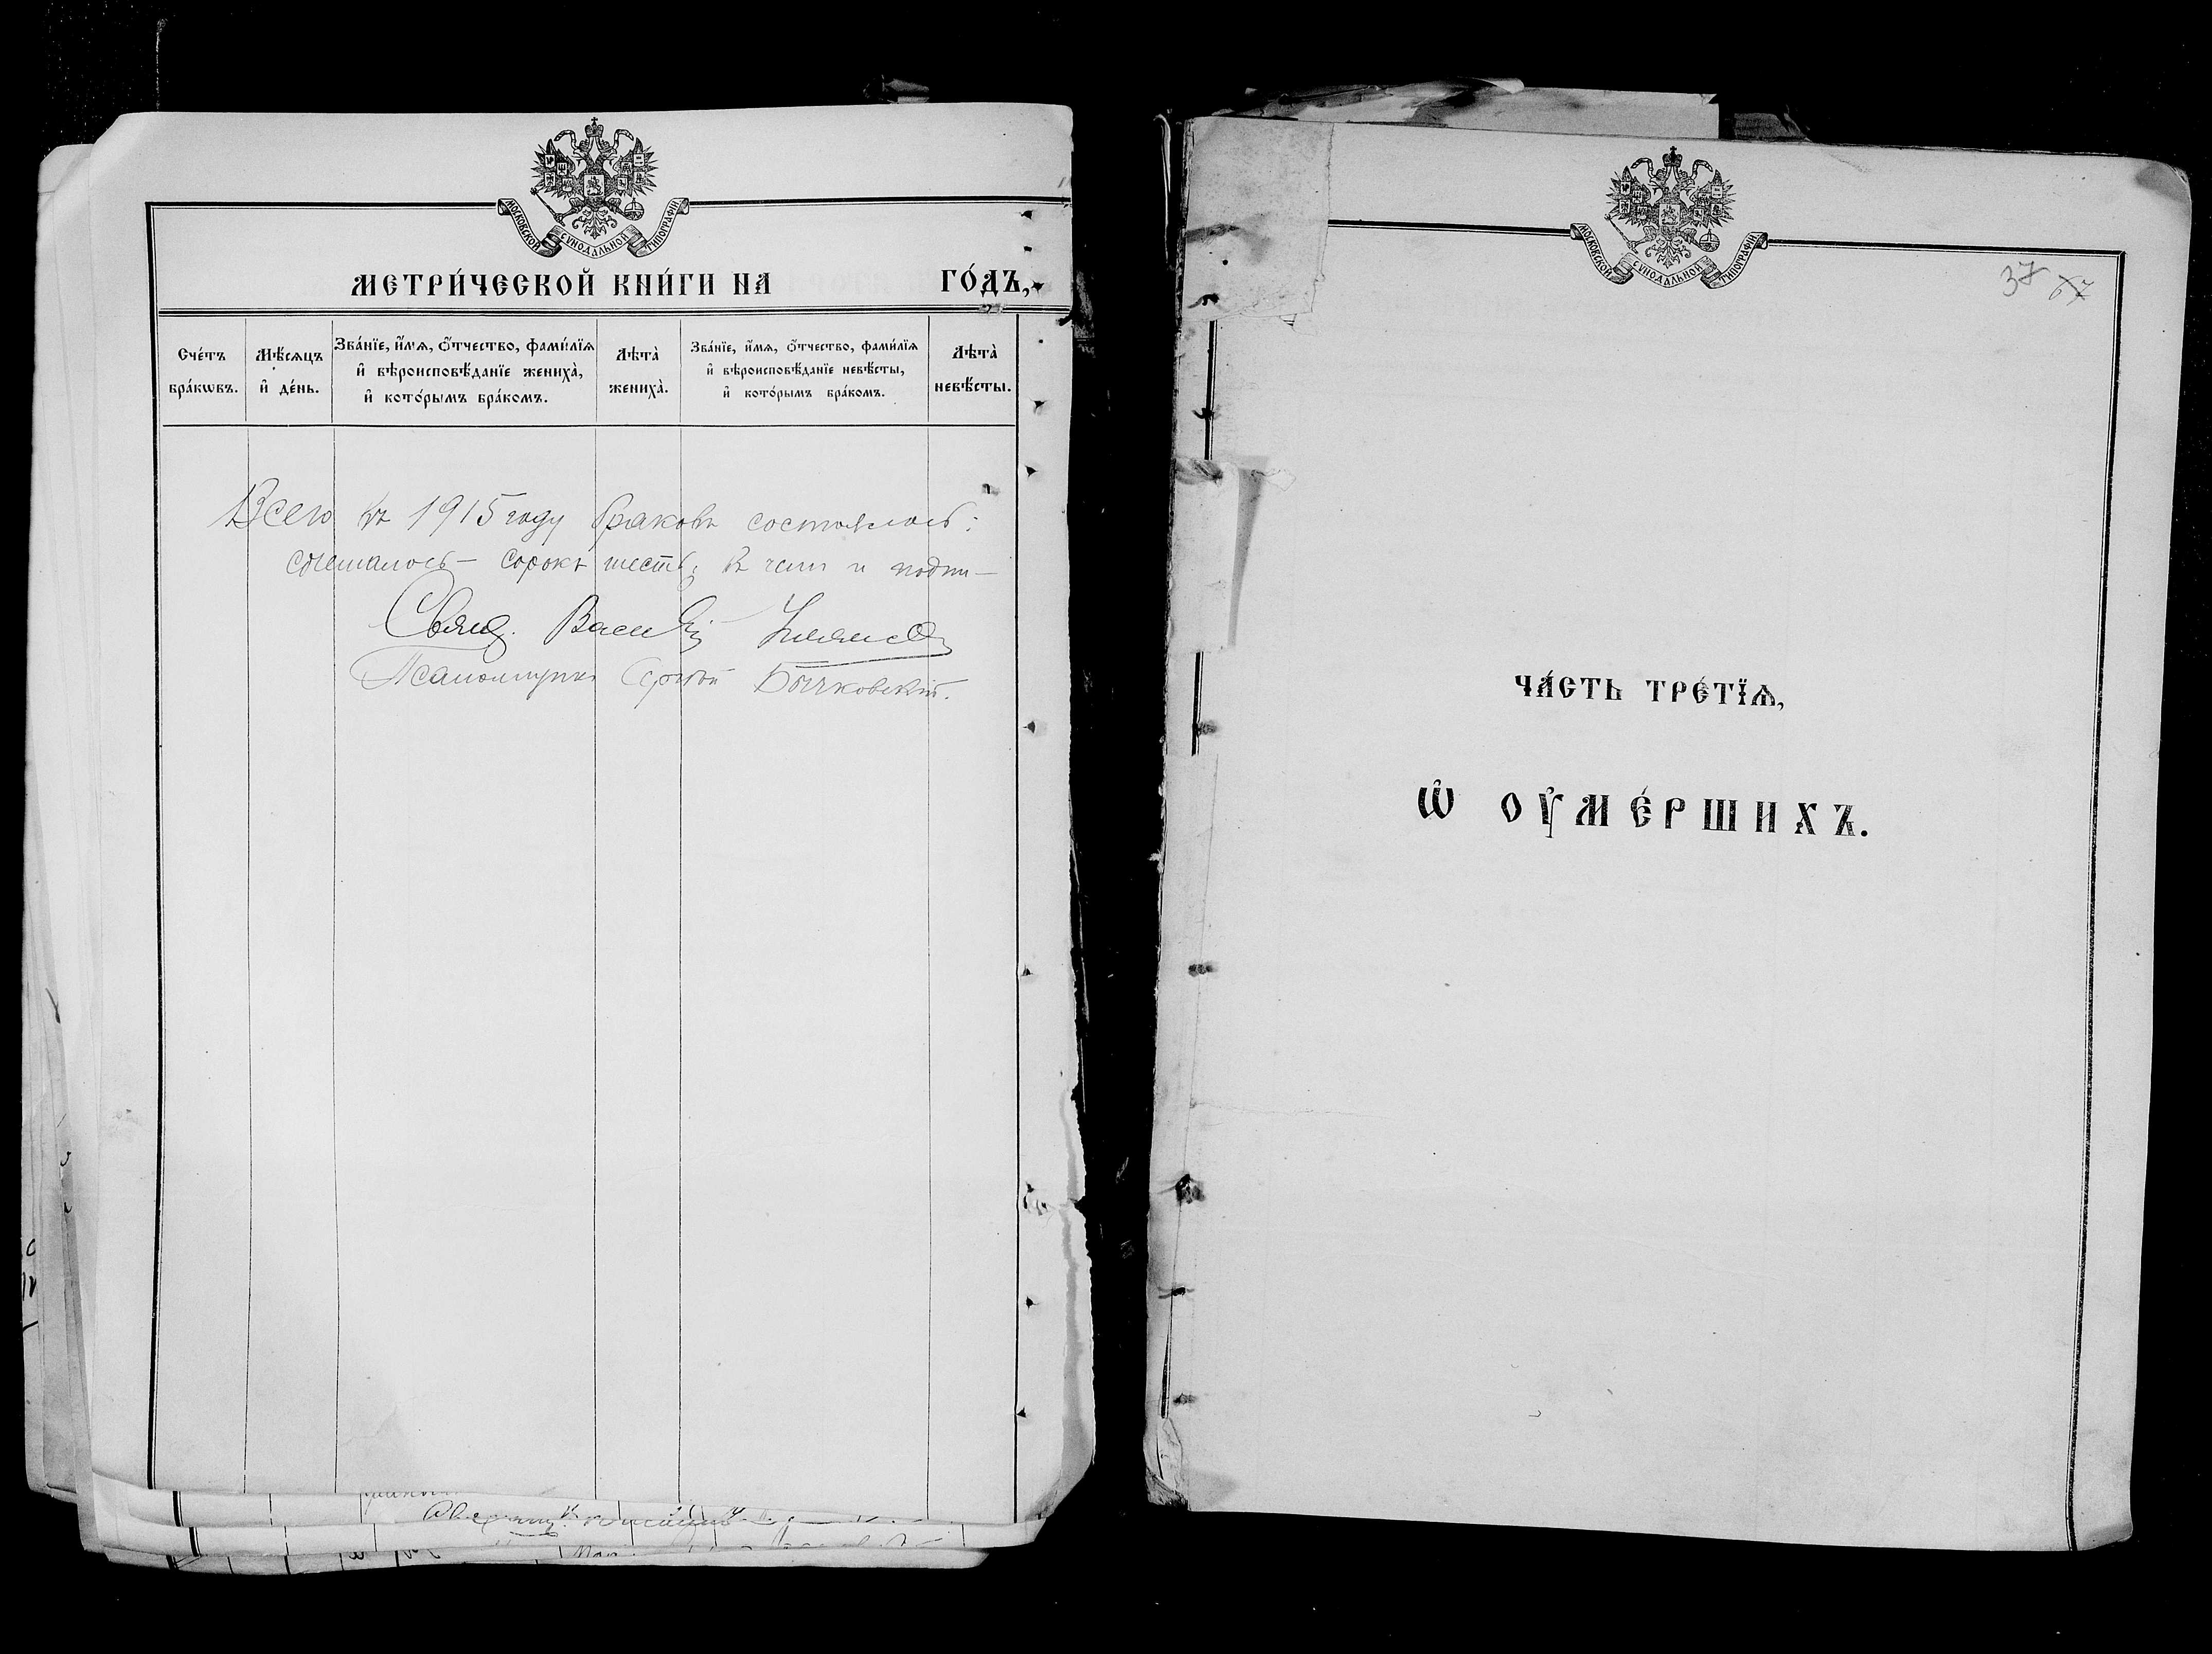 МОСКОВСКОЙ СѴНОДАЛЬНОЙ ТИПОГРАФІИ
МЕТРИ́ЧЕСКОЙ КНИ́ГИ НА ГО́ДЪ,
Сче́тъ бра́кѡвъ.
Мѣ́сяцъ и҆ де́нь.
Зва́нїе, и҆́мѧ, ѻ҆́тчество, фами́лїѧ
и҆ вѣроисповѣ́данїе жениха̀,
и҆ кото́рымъ бра́комъ.
Лѣта̀ жениха̀.
Зва́нїе, и҆́мѧ, ѻ҆́тчество, фами́лїѧ
и҆ вѣроисповѣ́данїе невѣ́сты,
и҆ кото́рымъ бра́комъ.
Лѣта̀ невѣ́сты.
Всего въ 1915 году браковъ состоялось:
сорокъ шесть; въ чем и подпи-
Свящ. Василій
Псаломщикъ Сергѣй Бычковскій.
МОСКОВСКОЙ СѴНОДАЛЬНОЙ ТИПОГРАФІИ
37 67
ЧА́СТЬ ТРЕ́ТЇѦ,
Ѡ҆ ОУ҆МЕ́РШИХЪ.